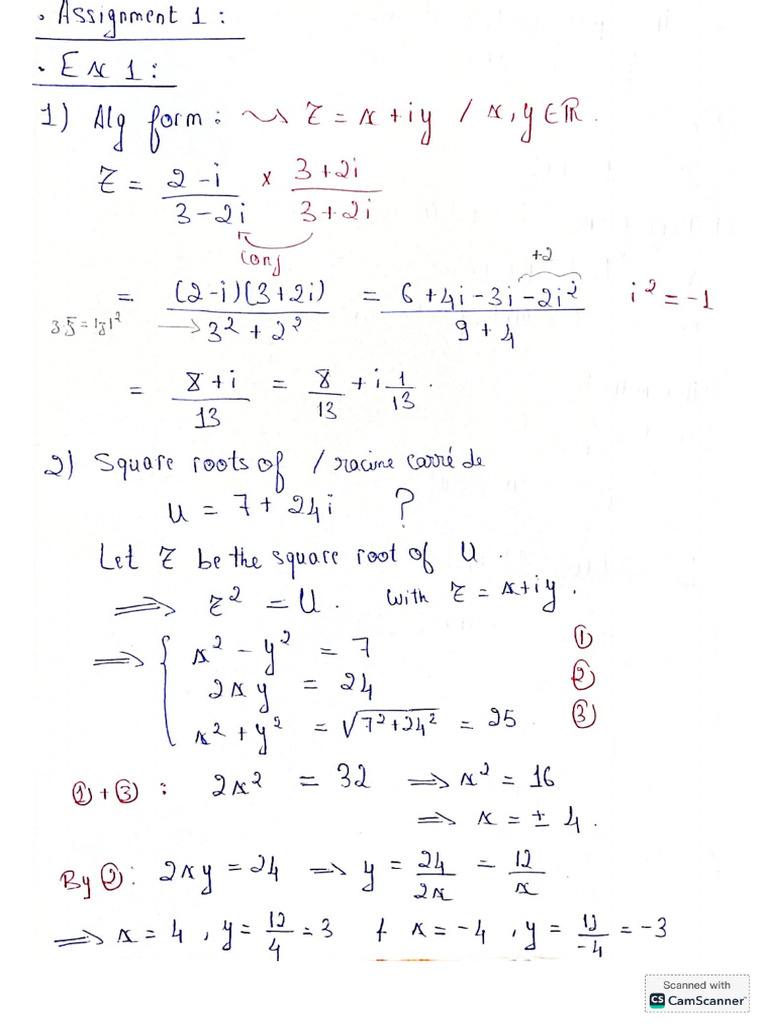 • Assignment 1 :
• Ex 1 :
1) Alg form : ⇝ z = x + iy / x, y ∈ ℝ.
z = (2 - i)/(3 - 2i) × (3 + 2i)/(3 + 2i)
conj
+2
= ((2-i)(3+2i))/(3² + 2²) = (6 + 4i - 3i - 2i²)/(9 + 4) i² = -1
z·z̄ = |z|² →
= (8 + i)/13 = 8/13 + i 1/13 .
2) Square roots of / racine carré de
u = 7 + 24i ?
Let z be the square root of u .
⟹ z² = u . with z = x + iy .
⟹ { x² - y² = 7 ①
2xy = 24 ②
x² + y² = √(7² + 24²) = 25 ③
① + ③ : 2x² = 32 ⟹ x² = 16
⟹ x = ± 4 .
By ② : 2xy = 24 ⟹ y = 24/2x = 12/x
⟹ x = 4 , y = 12/4 = 3 & x = -4 , y = 12/-4 = -3
Scanned with
CS CamScanner